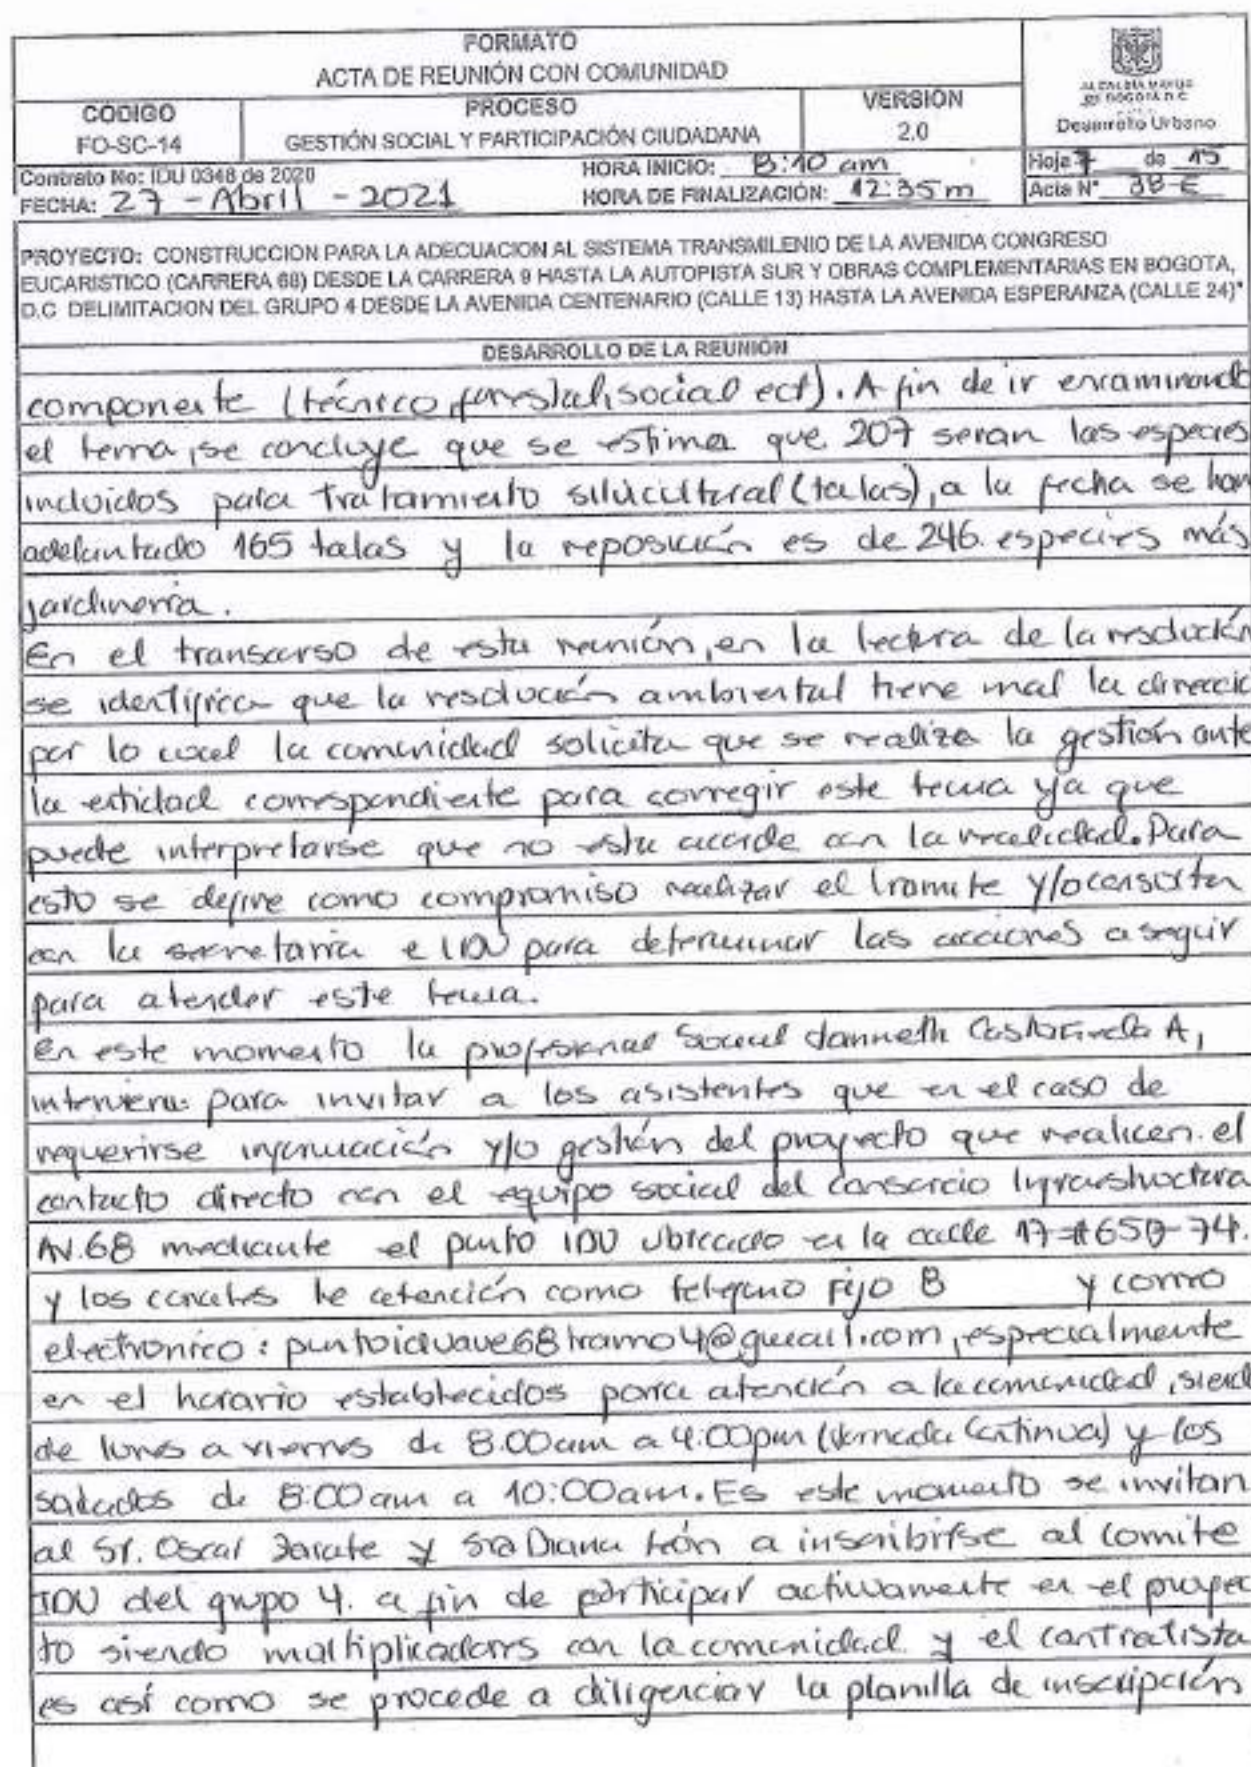 FORMATO
ACTA DE REUNIÓN CON COMUNIDAD
CÓDIGO
FO-SC-14
PROCESO
GESTIÓN SOCIAL Y PARTICIPACIÓN CIUDADANA
VERSIÓN
2.0
ALCALDÍA MAYOR
DE BOGOTÁ D.C.
Desarrollo Urbano
Contrato No: IDU 0348 de 2020
FECHA: 27 - Abril - 2021
HORA INICIO: 8:10 am
HORA DE FINALIZACIÓN: 12:35 m
Hoja 7 de 15
Acta N° 38-E
PROYECTO: CONSTRUCCION PARA LA ADECUACION AL SISTEMA TRANSMILENIO DE LA AVENIDA CONGRESO
EUCARISTICO (CARRERA 68) DESDE LA CARRERA 9 HASTA LA AUTOPISTA SUR Y OBRAS COMPLEMENTARIAS EN BOGOTA,
D.C DELIMITACION DEL GRUPO 4 DESDE LA AVENIDA CENTENARIO (CALLE 13) HASTA LA AVENIDA ESPERANZA (CALLE 24)"
DESARROLLO DE LA REUNIÓN
componente (técnico, forestal, social ect). A fin de ir encaminando
el tema, se concluye que se estima que 207 seran las especies
incluidos para tratamiento silucultural (talas), a la fecha se han
adelantado 165 talas y la reposición es de 246. especies más
jardineria.
En el transcurso de esta reunión, en la lectura de la resolución
se identifica que la resolución ambiental tiene mal la direcció
por lo cual la comunidad solicita que se realiza la gestión ante
la entidad correspondiente para corregir este tema ya que
puede interpretarse que no esta acorde con la realidad. Para
esto se define como compromiso realizar el tramite y/o consulta
con la secretaria e IDU para determinar las acciones a seguir
para atender este tema.
En este momento la profesional Social Janneth A,
interviene para invitar a los asistentes que en el caso de
requerirse información y/o gestión del proyecto que realicen. el
contacto directo con el equipo social del consorcio Infraestructura
AV.68 mediante el punto IDU ubicado en la calle 17 # 65B-74.
y los canales de atención como telefono Fijo 8 y correo
electronico: puntoiduave68tramo4@gmail.com, especialmente
en el horario establecidos para atención a la comunidad, siend
de lunes a viernes de 8:00am a 4:00pm (Jornada Continua) y los
sabados de 8:00am a 10:00am. Es este momento se invitan
al Sr. Oscar Zarate y Sra Diana León a inscribirse al Comite
IDU del grupo 4. a fin de participar activamente en el proyec
to siendo multiplicadores con la comunidad y el contratista
es así como se procede a diligenciar la planilla de inscripción